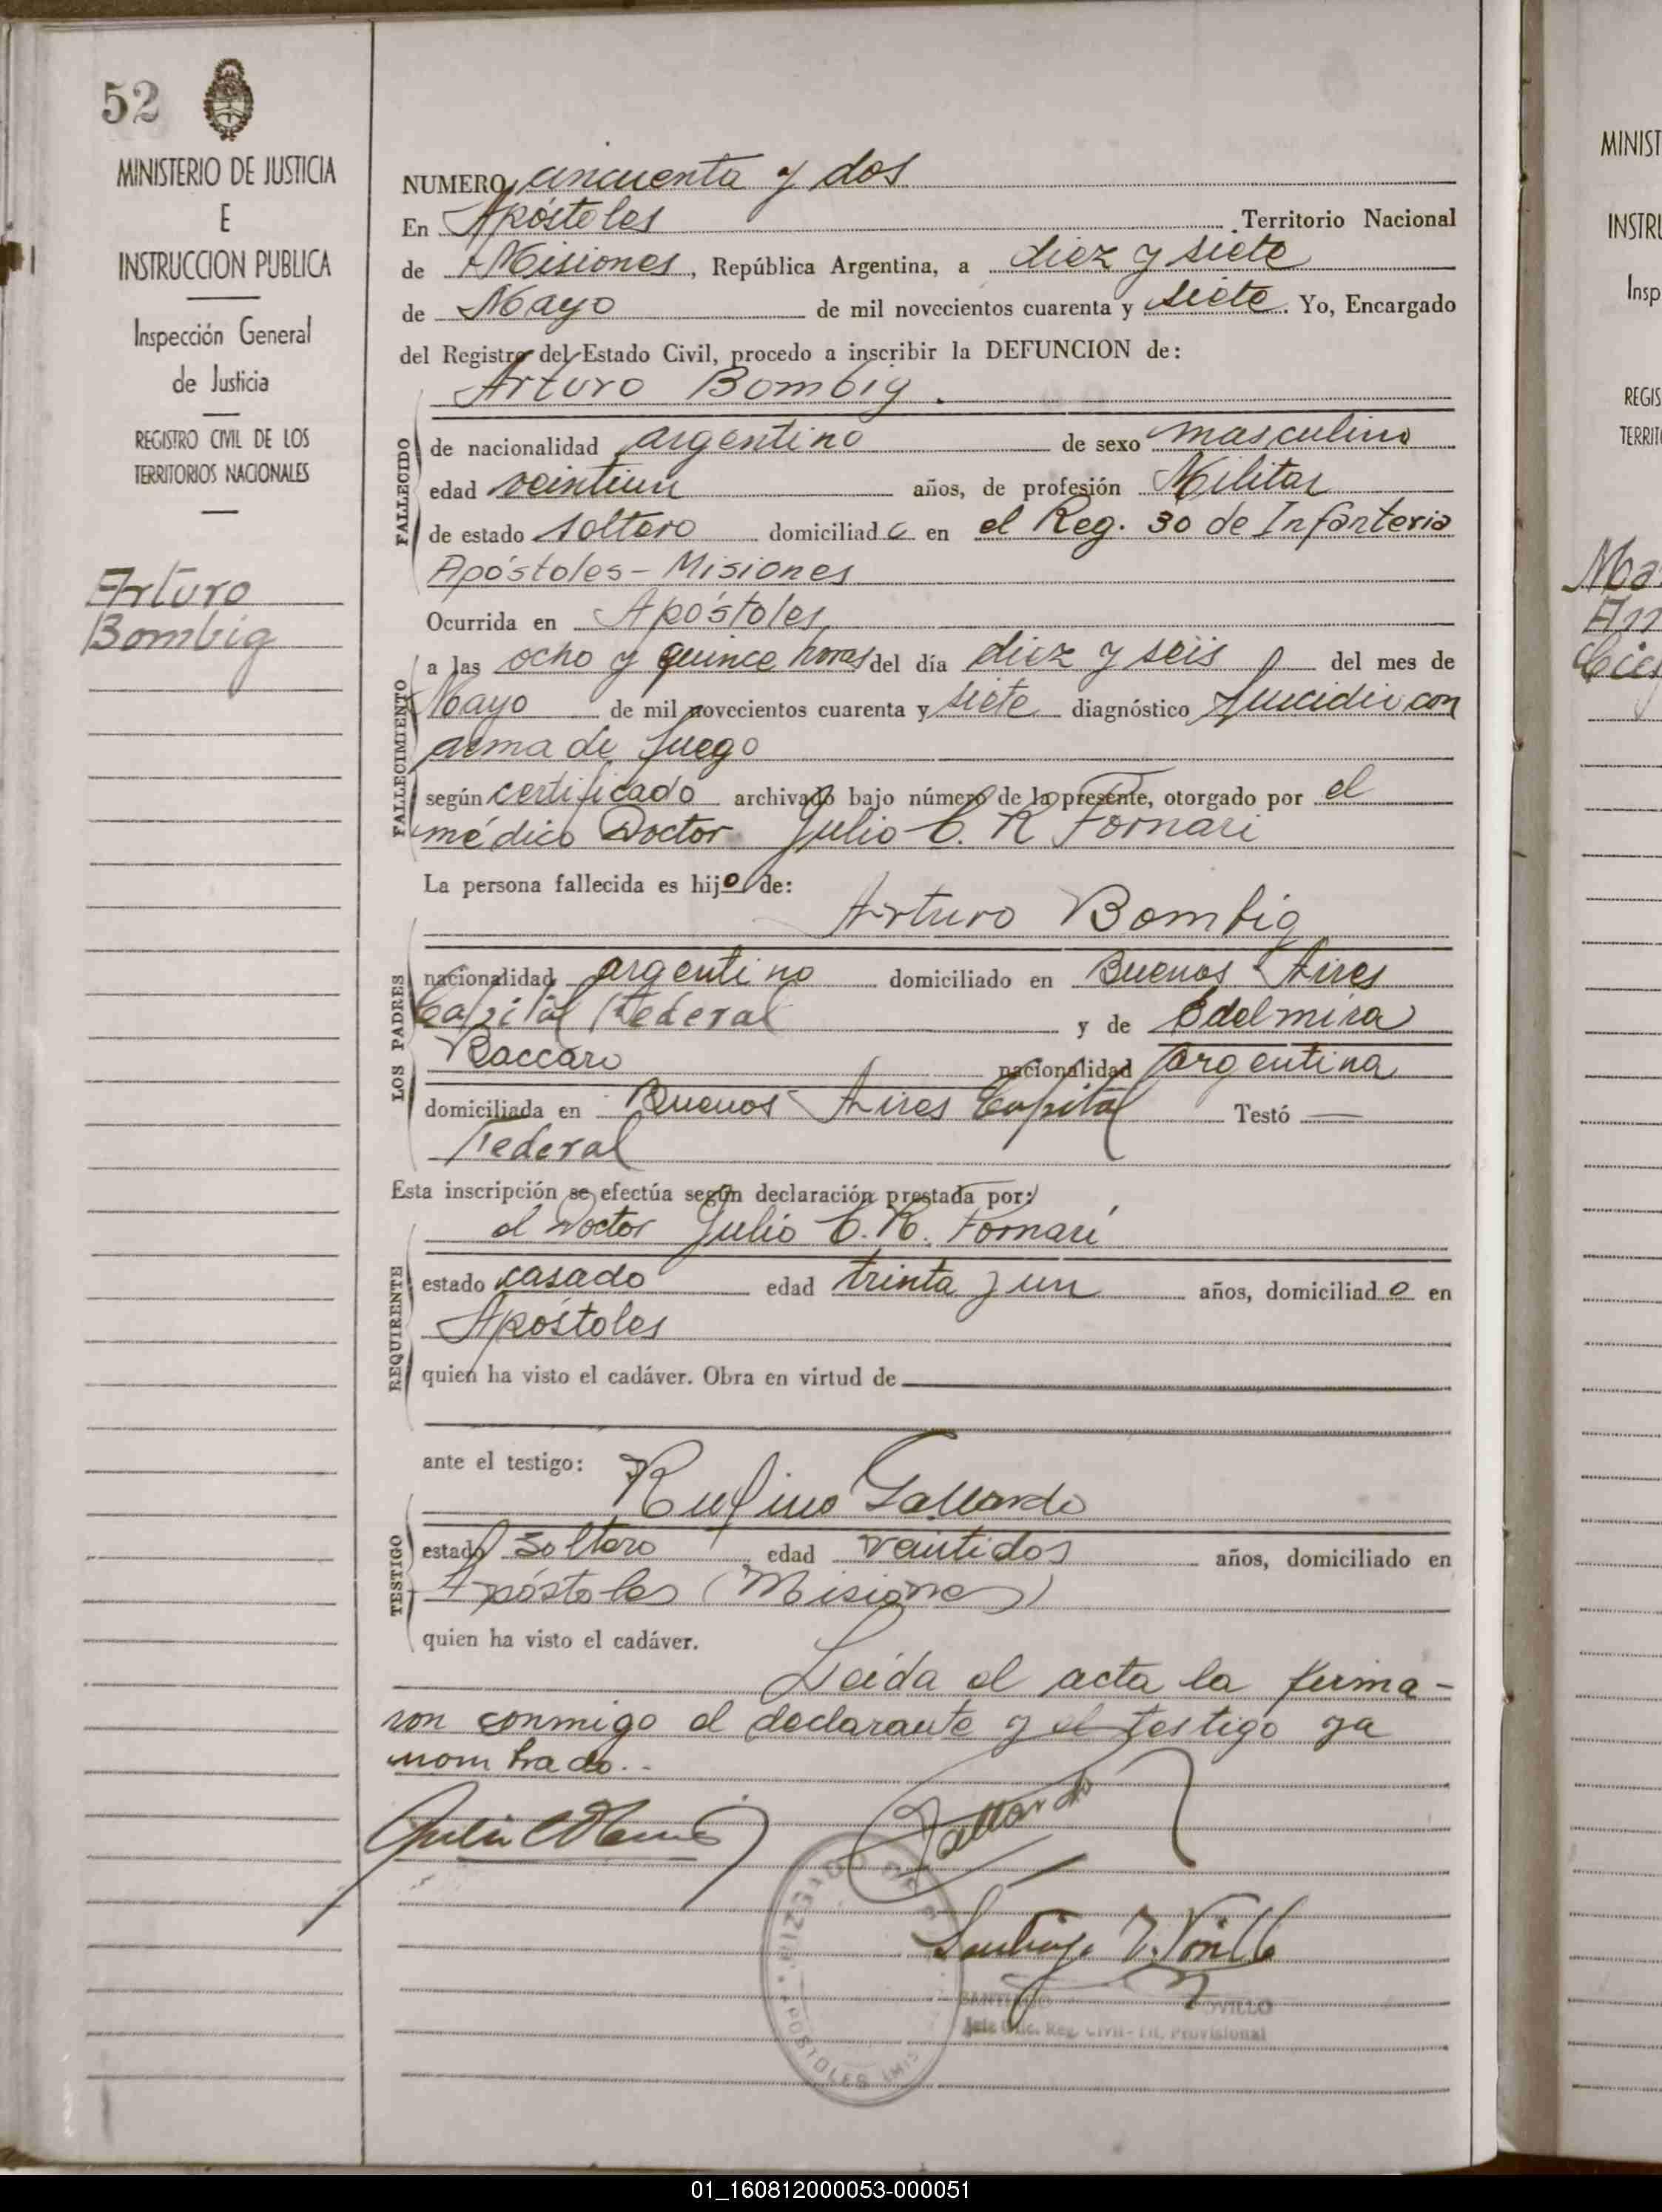 52
MINISTERIO DE JUSTICIA
E
INSTRUCCION PUBLICA
Inspección General
de Justicia
REGISTRO CIVIL DE LOS
TERRITORIOS NACIONALES
Arturo
Bombig
NUMERO cincuenta y dos
En Apóstoles Territorio Nacional
de Misiones, República Argentina, a diez y siete
de Mayo de mil novecientos cuarenta y siete. Yo, Encargado
del Registro del Estado Civil, procedo a inscribir la DEFUNCION de:
Arturo Bombig.
FALLECIDO
de nacionalidad argentino de sexo masculino
edad veintiun años, de profesión Militar
de estado soltero domiciliado en el Reg. 30 de Infanteria
Apóstoles - Misiones
Ocurrida en Apóstoles
FALLECIMIENTO
a las ocho y quince horas del día diez y seis del mes de
Mayo de mil novecientos cuarenta y siete diagnóstico Suicidio con
arma de fuego
según certificado archivado bajo número de la presente, otorgado por el
médico Doctor Julio C. R. Fornari
La persona fallecida es hijo de:
Arturo Bombig
LOS PADRES
nacionalidad argentino domiciliado en Buenos Aires
Capital Federal y de Edelmira
Baccaro nacionalidad argentina
domiciliada en Buenos Aires Capital Testó
Federal
Esta inscripción se efectúa según declaración prestada por:
el Doctor Julio C. R. Fornari
REQUIRENTE
estado casado edad trinta y un años, domiciliado en
Apóstoles
quien ha visto el cadáver. Obra en virtud de
ante el testigo:
Rufino Gallardo
TESTIGO
estado soltero edad veintidos años, domiciliado en
Apóstoles (Misiones)
quien ha visto el cadáver.
Leída el acta la firma-
ron conmigo el declarante y el testigo ya
nombrado..
Gallardo
SANTIAGO
Reg. Civil - Tit. Provisional
APOSTOLES (MIS
MINIST
INSTRU
Insp
REGIS
TERRIT
01_160812000053-000051